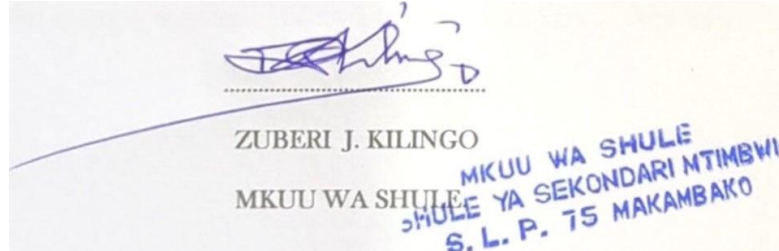 ZUBERI J. KILINGO
MKUU WA SHULE
MKUU WA SHULE
SHULE YA SEKONDARI MTIMBWI
S. L. P. 75 MAKAMBAKO